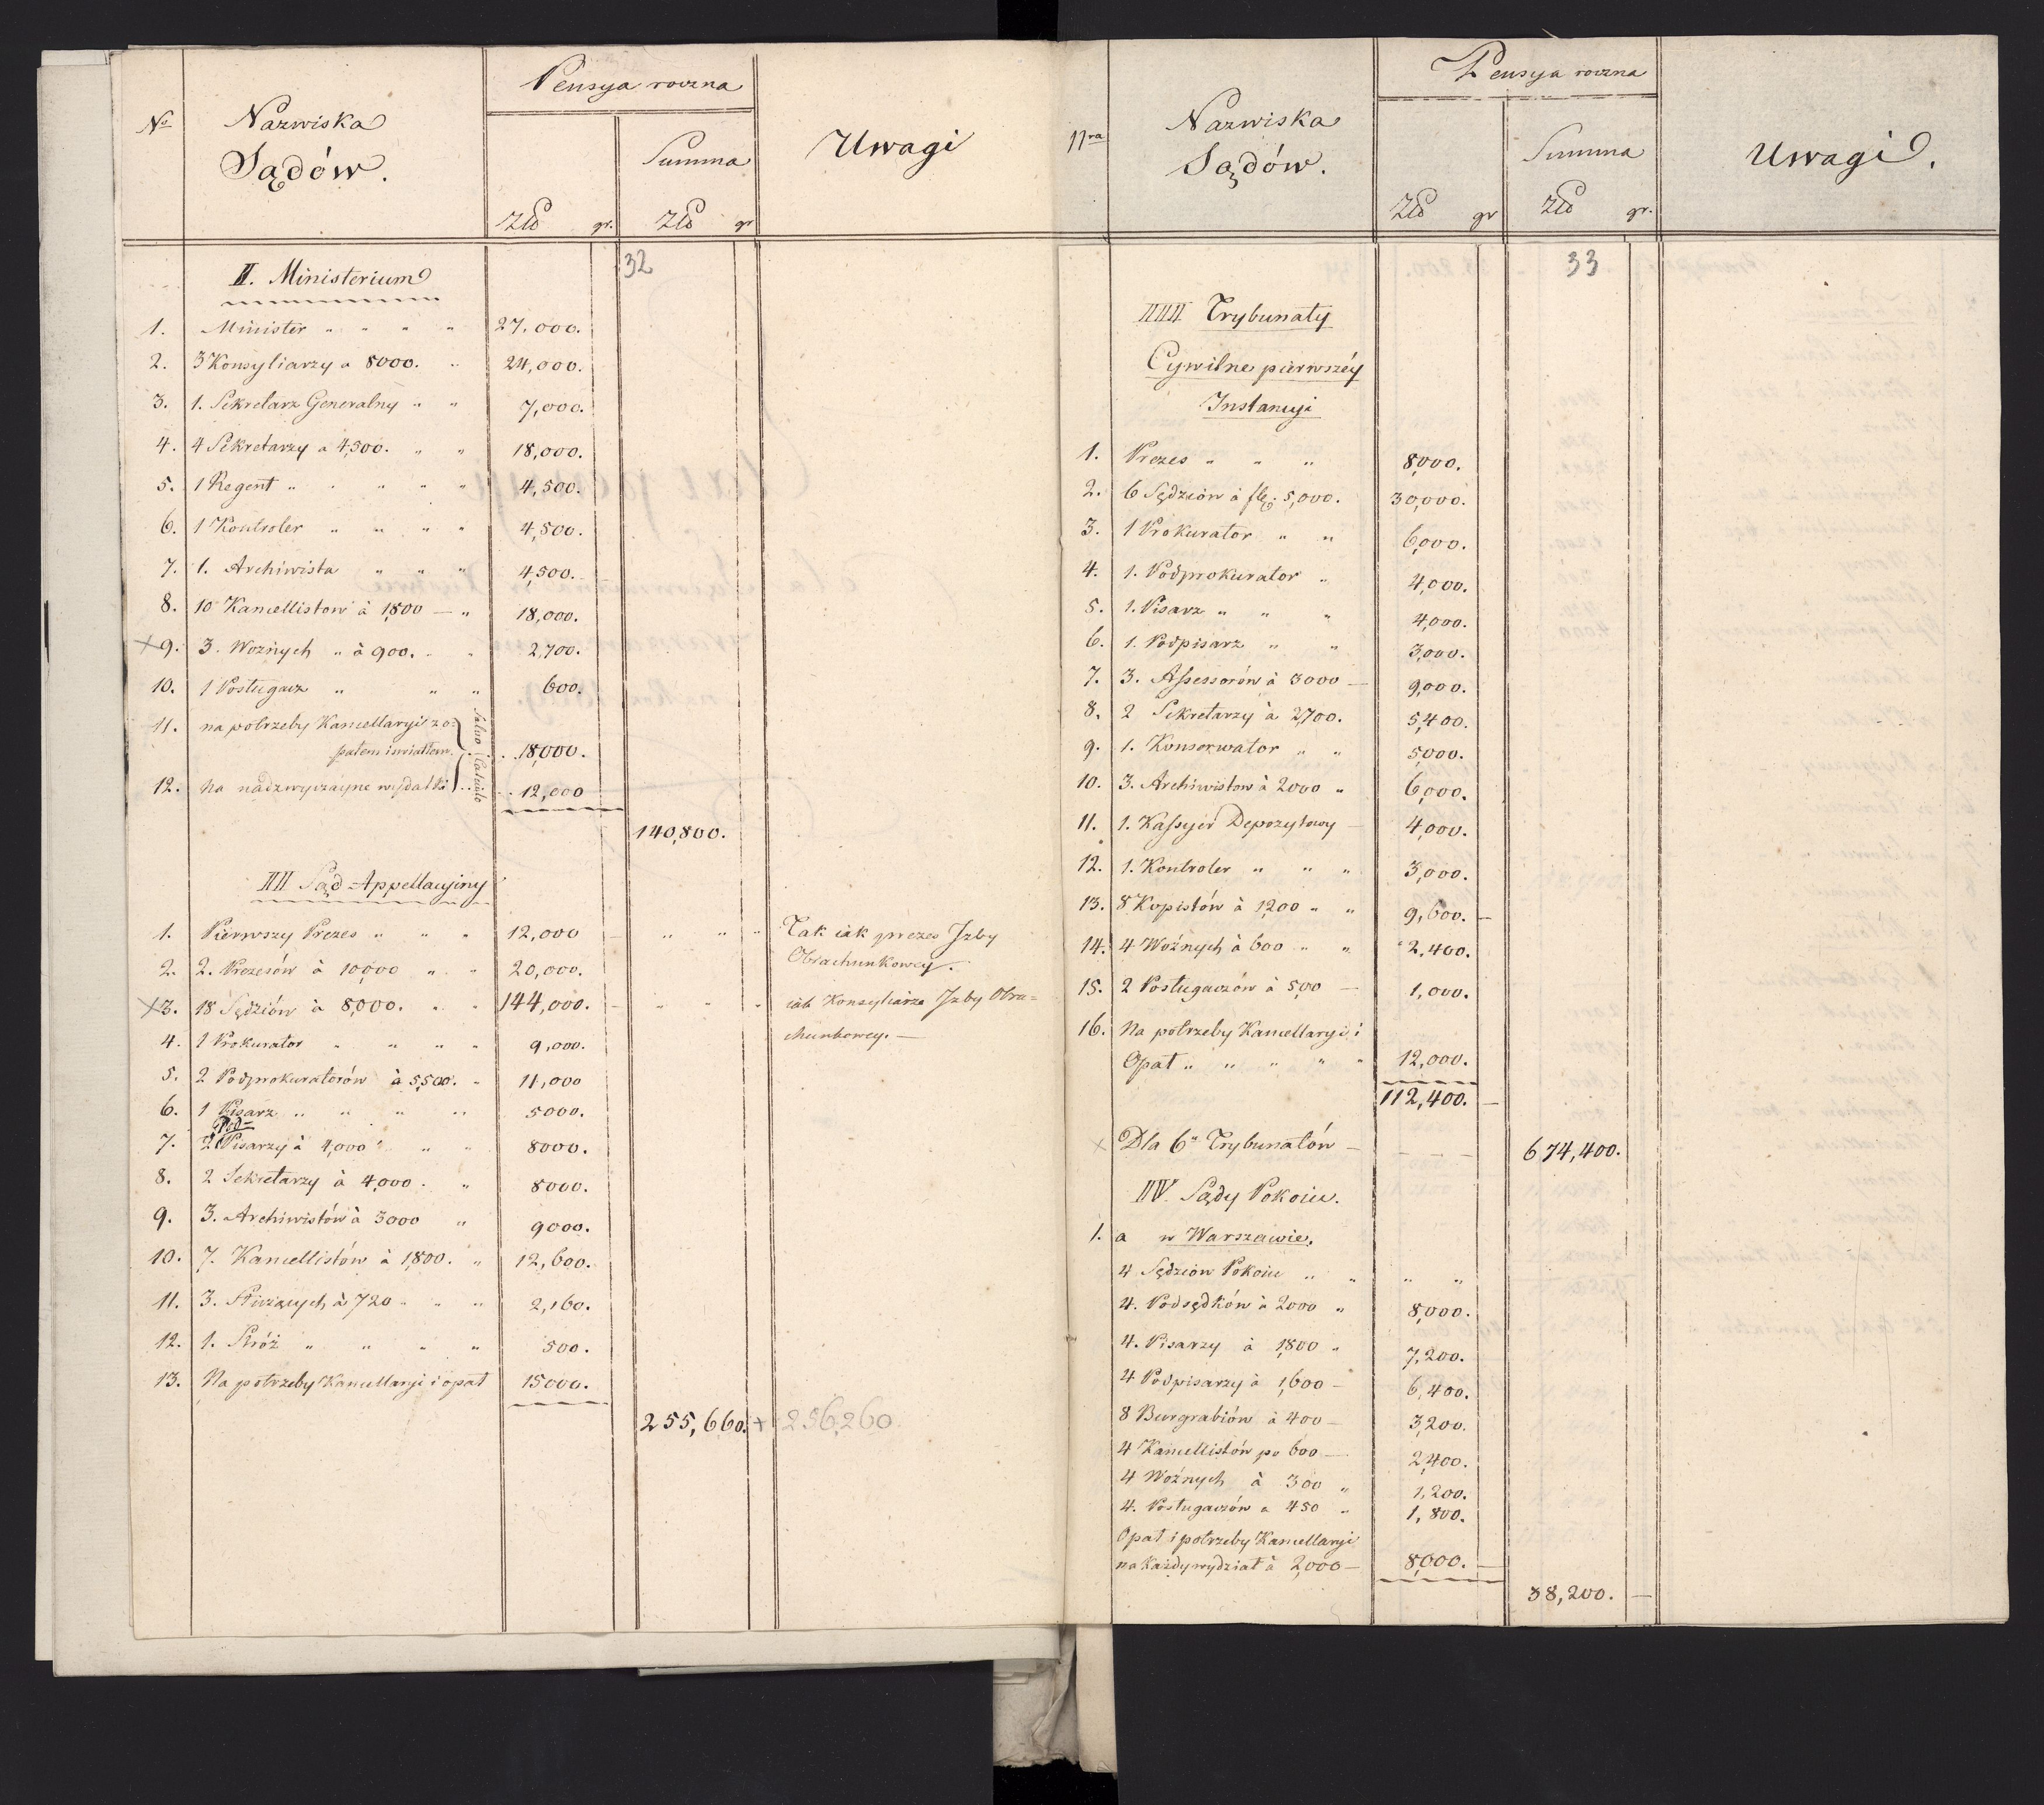 No
Nazwiska
Sądów.
Pensya roczna
Summa
Złp gr. Złp gr
Uwagi
32
I. Ministerium
1. Minister " " " " 27,000.
2. 3 Konsyliarzy a 8000. " 24,000.
3. 1. Sekretarz Generalny " " 7,000.
4. 4 Sekretarzy a 4,500. " " 18,000.
5. 1 Regent " " " " " 4,500.
6. 1 Kontroler " " " " 4,500.
7. 1. Archiwista " " " 4,500.
8. 10 Kancellistow à 1,800 — " 18,000.
×9. 3. Woznych " à 900. " " 2,700.
10. 1 Posługacz " " " 600.
11. na potrzeby Kancellaryi z o-
pałem i swiatłem. 18,000.
12. Na nadzwyczayne wydatki 12,000
Salvo Calculo
140,800.
II Sąd Appellacyiny
1. Pierwszy Prezes " " " 12,000 " " " Tak iak prezes Izby
Obrachunkowey.
2. 2. Prezesów à 10,000 " " 20,000.
×3. 18 Sędziów à 8,000. " " 144,000. " " " iak Konsyliarze Izby Obra=
chunkowey. —
4. 1 Prokurator " " " " 9,000.
5. 2 Podprokuratorów à 5,500. " 11,000
6. 1 Pisarz " " " " 5000.
Pod=
7. 2 Pisarzy à 4,000 " " " 8000.
8. 2 Sekretarzy à 4,000. " 8000.
9. 3. Archiwistów à 3000 " 9000.
10. 7. Kancellistów à 1,800. " 12,600.
11. 3. Służących à 720 " " " 2,160.
12. 1. Stróż " " " " 500.
13. Na potrzeby Kancellaryi i opał 15000.
255,660. + 256,260
Nra
Nazwiska
Sądów.
Pensya roczna
Summa
Złp gr Złp gr.
Uwagi.
33
III Trybunały
Cywilne pierwszéy
Instancyi
1. Prezes " " " 8,000.
2. 6 Sędziów à flp. 5,000. 30,000.
3. 1 Prokurator " " 6,000.
4. 1. Podprokurator " 4,000.
5. 1. Pisarz " " " 4,000.
6. 1. Podpisarz " " 3,000.
7. 3. Assessorów à 3000 — 9,000.
8. 2 Sekretarzy à 2,700. 5,400.
9. 1. Konserwator " " 5,000.
10. 3. Archiwistow à 2000 " 6,000.
11. 1. Kassyer Depozytowy — 4,000.
12. 1. Kontroler " " " 3,000.
13. 8 Kopistów à 1,200 " " 9,600. —
14. 4 Woźnych à 600 " " 2,400.
15. 2 Posługaczów à 500 — 1,000.
16. Na potrzeby Kancellaryi i
Opał " " " " " 12,000.
112,400. —
× Dla 6u Trybunałów — — — — 674,400.
IV. Sądy Pokoiu.
1. a w Warszawie.
4 Sędziów Pokoiu " " " "
4. Podsędków à 2000 " 8,000.
4. Pisarzy à 1,800 " 7,200.
4 Podpisarzy à 1,600 — 6,400.
8 Burgrabiów à 400 — 3,200.
4 Kancellistów po 600 — 2,400.
4 Woźnych à 300 " 1,200.
4. Posługaczów a 450 " 1,800.
Opał i potrzeby Kancellaryi
na Każdy wydział à 2,000 — 8,000. —
38,200. —